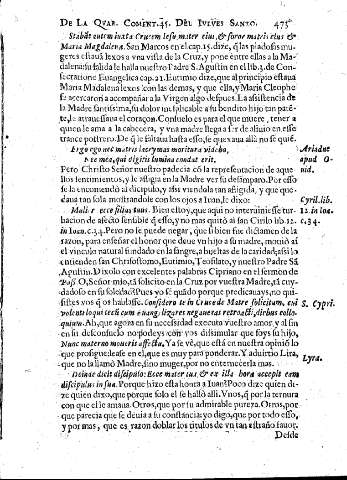 DE LA QVAR. COMENT. 45. DEL IVEVES SANTO. 475
Stabāt autem iuxta Crucem Iesu mater eius, & soror matris eius &
Maria Magdalena. San Marcos en el cap. 15. dize, q̃ las piadosas mu-
geres estauā lexos a vna vista de la Cruz, y pone entre ellas a la Ma-
dalena: su salida le halla nuestro Padre S. Agustin en el lib. 3. de Con-
certatione Euangelica cap. 21. Eutimio dize, que al principio estauā
Maria Madalena lexos con las demas, y que ella, y Maria Cleophe
se acercarō a acompañar a la Virgen algo despues. La asistencia de
la Madre santissima, su dolor implacable a su bendito hijo tan paté-
te, le atrauessaua el coraçon. Consuelo es para el que muere, tener a
quien le ame a la cabecera, y vna madre llega a ser de aliuio en esse
trance postrero. De q̃ le faltaua hasta esso, se quexaua allà no se què.
Ergo ego nec matris lacrymas moritura videbo,
Nec mea, qui digitis lumina condat erit.
Ariadne
apud O-
uid.
Pero Christo Señor nuestro padecia cō la representacion de aque-
llos sentimientos, y le afligia en la Madre ver su desamparo. Por esso
se la encomendò al dicipulo, y assi viendola tan afligida, y que que-
daua tan sola mostrandole con los ojos a Iuan, le dixo:
Mulier ecce filius tuus. Bien estoy, que aqui no interuiniesse tur-
bacion de afecto sensible q̃ esso, y no mas quitò ai san Cirilo lib. 12.
in Ioan. c. 34. Pero no se puede negar, que si bien fue dictamen de la
razon, para enseñar el honor que deue vn hijo a su madre, mouiò aì
el vinculo natural fundado en la sangre, a bueltas de la caridad; assi lo
entienden san Chrisostomo, Eutimio, Teofilato, y nuestro Padre Sā
Agustin.
Cyril. lib.
12. in Ioā.
c. 34.
Dixolo con excelentes palabras Cipriano en el sermon de
O Señor mio, tã solicito en la Cruz por vuestra Madre, tã cuy-
dadoso en su soledad? Pues yo sè quādo porque predicauays, no qui-
sistes vos q̃ os hablasse. Considero te in Cruce de Matre solicitum, cui
volenti loqui tecum euang. legeres negaueras retroacti, diebus collo-
quium. Ah, que agora en su necessidad executa vuestro amor, y al fin
en su desconsuelo no podeys con vos dissimular que soys su hijo,
Nunc materno moueris affectu. Ya se vè, que està en nuestra opinió lo
que prosigue Iesus en el, que es muy para ponderar. Y aduirtio Lira,
que no la llamó Madre, sino muger, por no enternecerla mas.
S. Cypri.
Lyra.
Deinde dicit discipulo: Ecce mater tua, & ex illa hora accepit eam
discipulus in sua. Porque hizo esta honra a Iuan? Poco dize quien di-
ze quien dixo, que porque solo el se hallò alli. Vnos, q̃ por la ternura
con que el le amaua. Otros, que por su admirable pureza. Otros, por
que parecia que se deuia a su constancia: yo digo, que por todo esso,
y por mas, que es razon doblar los titulos de vn tan estraño fauor.
Desde